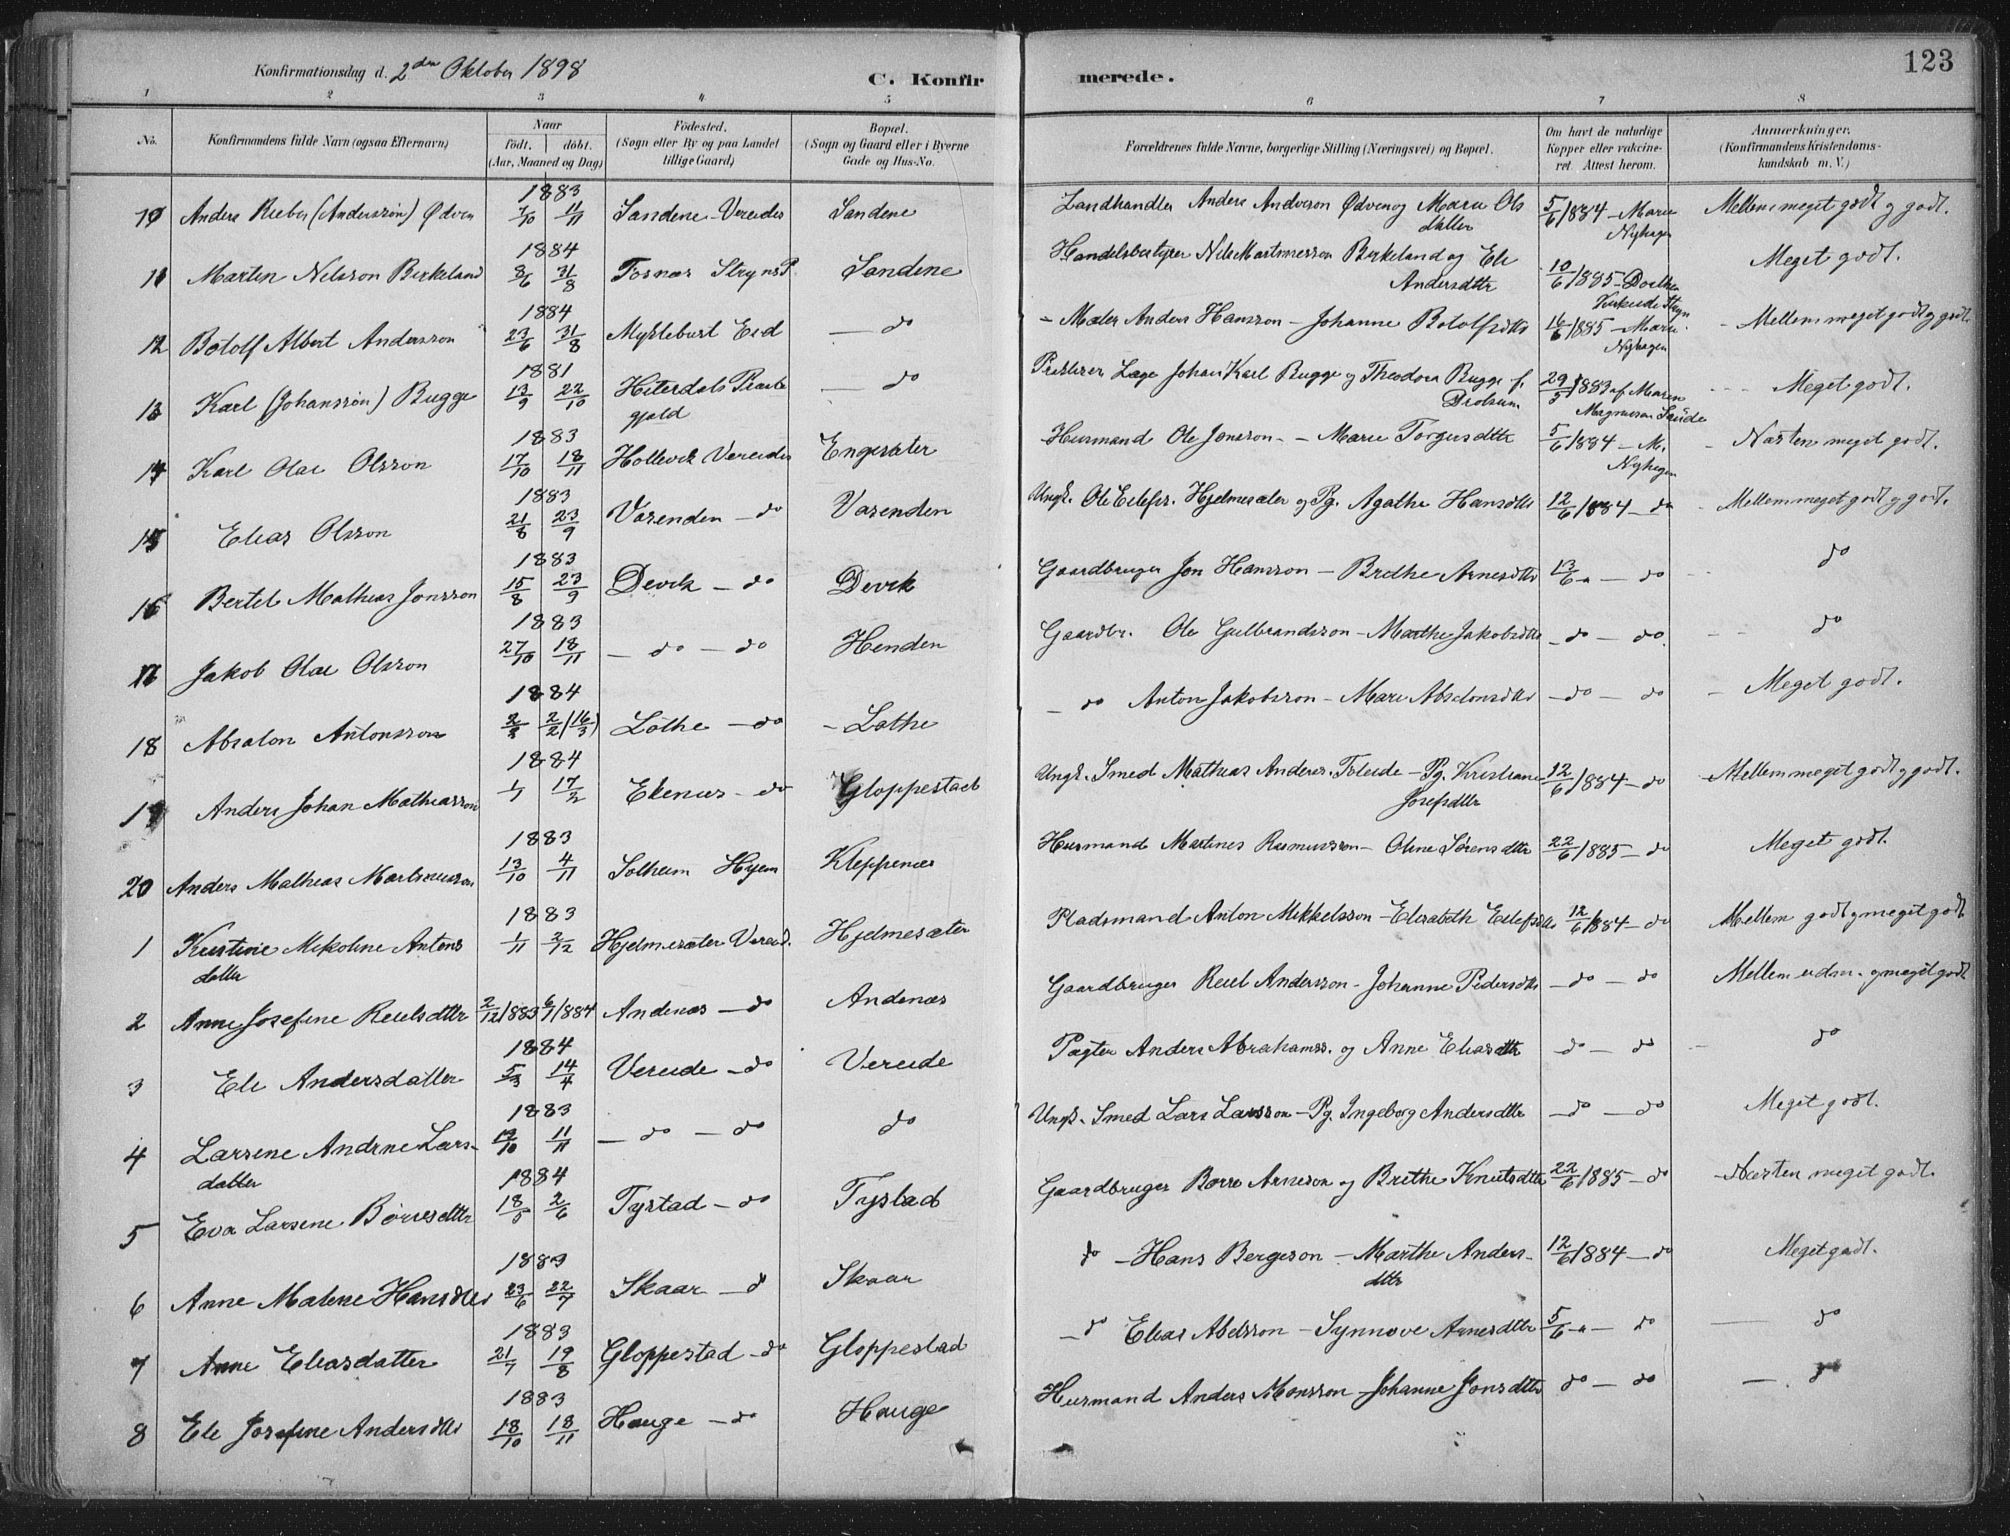 Konfirmationsdag d. 2den Oktober 1898
C. Konfirmerede.
123
1 2 3 4 5 6 7 8
No.
Konfirmandens fulde Navn (ogsaa Efternavn)
Naar
født. døbt.
(Aar, Maaned og Dag)
Fødested.
(Sogn eller By og paa Landet
tillige Gaard)
Bopæl.
(Sogn og Gaard eller i Byerne
Gade og Hus-No.
Forældrenes fulde Navne, borgerlige Stilling (Næringsvei) og Bopæl.
Om havt de naturlige
Kopper eller vakcine-
ret. Attest herom.
Anmærkninger.
(Konfirmandens Kristendoms-
kundskab m. V.)
1883
Anders Rieber (Anderssøn) Ødven 7/10 11/11 Sandene - Vereides Sandene Landhandler Anders Anderson Ødven og Marie Ols 5/6/1884 - Marie Mellem meget godt og godt.
datter Nyhagen
1884
11 Marten Nelsson Birkeland 8/6 31/8 Tosnæs Stryns P. Sandene Handelsbestyrer Nils Martinusson Birkeland og Eli 10/6/1885 - Dorthea Meget godt.
Andersdttr
1884
12 Botolf Albert Andersson 23/6 31/8 Myklebust Eid - do - Maler Anders Hansson - Johanne Botolfsdttr 16/6/1885 - Marie - Mellem meget godt og godt.
Nyhagen
1881
13 Karl (Johanssøn) Bugge 13/9 22/10 Hiterdals Præste - do Læge Johan Karl Bugge og Theodora Bugge f. 29/5/1883 af Maren Meget godt.
gjeld Drolsum Magnusson
1883
14 Karl Olai Olsson 17/10 18/11 Hollevik Vereides Engesæter Husmand Ole Jonsson - Marie Torgersdttr 5/6/1884 - M. - Næsten meget godt.
Nyhagen
1883
15 Elias Olsson 21/8 23/9 Vasenden - do Vasenden Ungk. Ole Eilefss. Hjelmesæter og Pg. Agathe Hansdttr 12/6/1884 - do - Mellem meget godt og godt.
1883
16 Bertel Mathias Jonsson 15/8 23/9 Devik - do Devik Gaardbruger Jon Hansson - Brethe Arnesdttr 13/6 - do do
1883
17 Jakob Olai Olsson 27/10 18/11 - do - do Henden Gaardbr. Ole Gulbrandsson - Marthe Jakobsdttr - do - do do
1884
18 Absalon Antonsson 2/2 (16/3) Lothe - do - Lothe - do Anton Jakobsson - Mari Absalonsdttr - do - do - Meget godt.
1884
19 Anders Johan Mathiasson 1/1 17/2 Ekenes - do Gloppestad Ungk. Smed Mathias Anders. - Pg. Kristiane 12/6/1884 - do - Mellem meget godt og godt.
Josefsdttr
1883
20 Anders Mathias Martinusson 13/10 4/11 Solheim Hyen Kleppenæs Husmand Martines Rasmusson - Oline Sørensdttr 22/6/1885 - do Meget godt.
1883
1 Kristine Mikoline Antons 1/11 2/12 Hjelmesæter Vereid. Hjelmesæter Pladsmand Anton Mikkelsson - Elisabeth Eilefsdttr 12/6/1884 - do Mellem godt og meget godt
datter
2 Anne Josefine Reielsdttr 2/12/1883 6/1/1884 Andenæs - do Andenæs Gaardbruger Reiel Andersson - Johanne Pedersdttr - do - do Mellem udm. og meget godt
1884
3 Eli Andersdatter 5/3 14/4 Vereide - do Vereide Pagter Anders Abrahamss. og Anne Eliasdttr - do - do - do
1883
4 Larsine Andrine Lars- 13/10 11/11 - do - do do Ungk. Smed Lars Larsson - Pg. Ingeborg Andersdttr - do - do Meget godt.
datter
1884
5 Eva Larsine Børresdttr 18/5 2/6 Tystad - do Tystad Gaardbruger Børre Arneson og Brithe Knutsdttr 22/6/1885 - do - Næsten meget godt.
1883
6 Anne Malene Hansdttr 23/6 22/7 Skaar - do Skaar do - Hans Bergeson - Marthe Anders- 12/6/1884 - do Meget godt.
dttr
1883
7 Anne Eliasdatter 21/7 19/8 Gloppestad - do Gloppestad - do Elias Abelsson - Synnove Arnesdttr 5/6 - do do
1883
8 Eli Josefine Andersdttr 18/10 18/11 Hauge - do Hauge Husmand Anders Monsson - Johanne Jonsdttr do - do - do